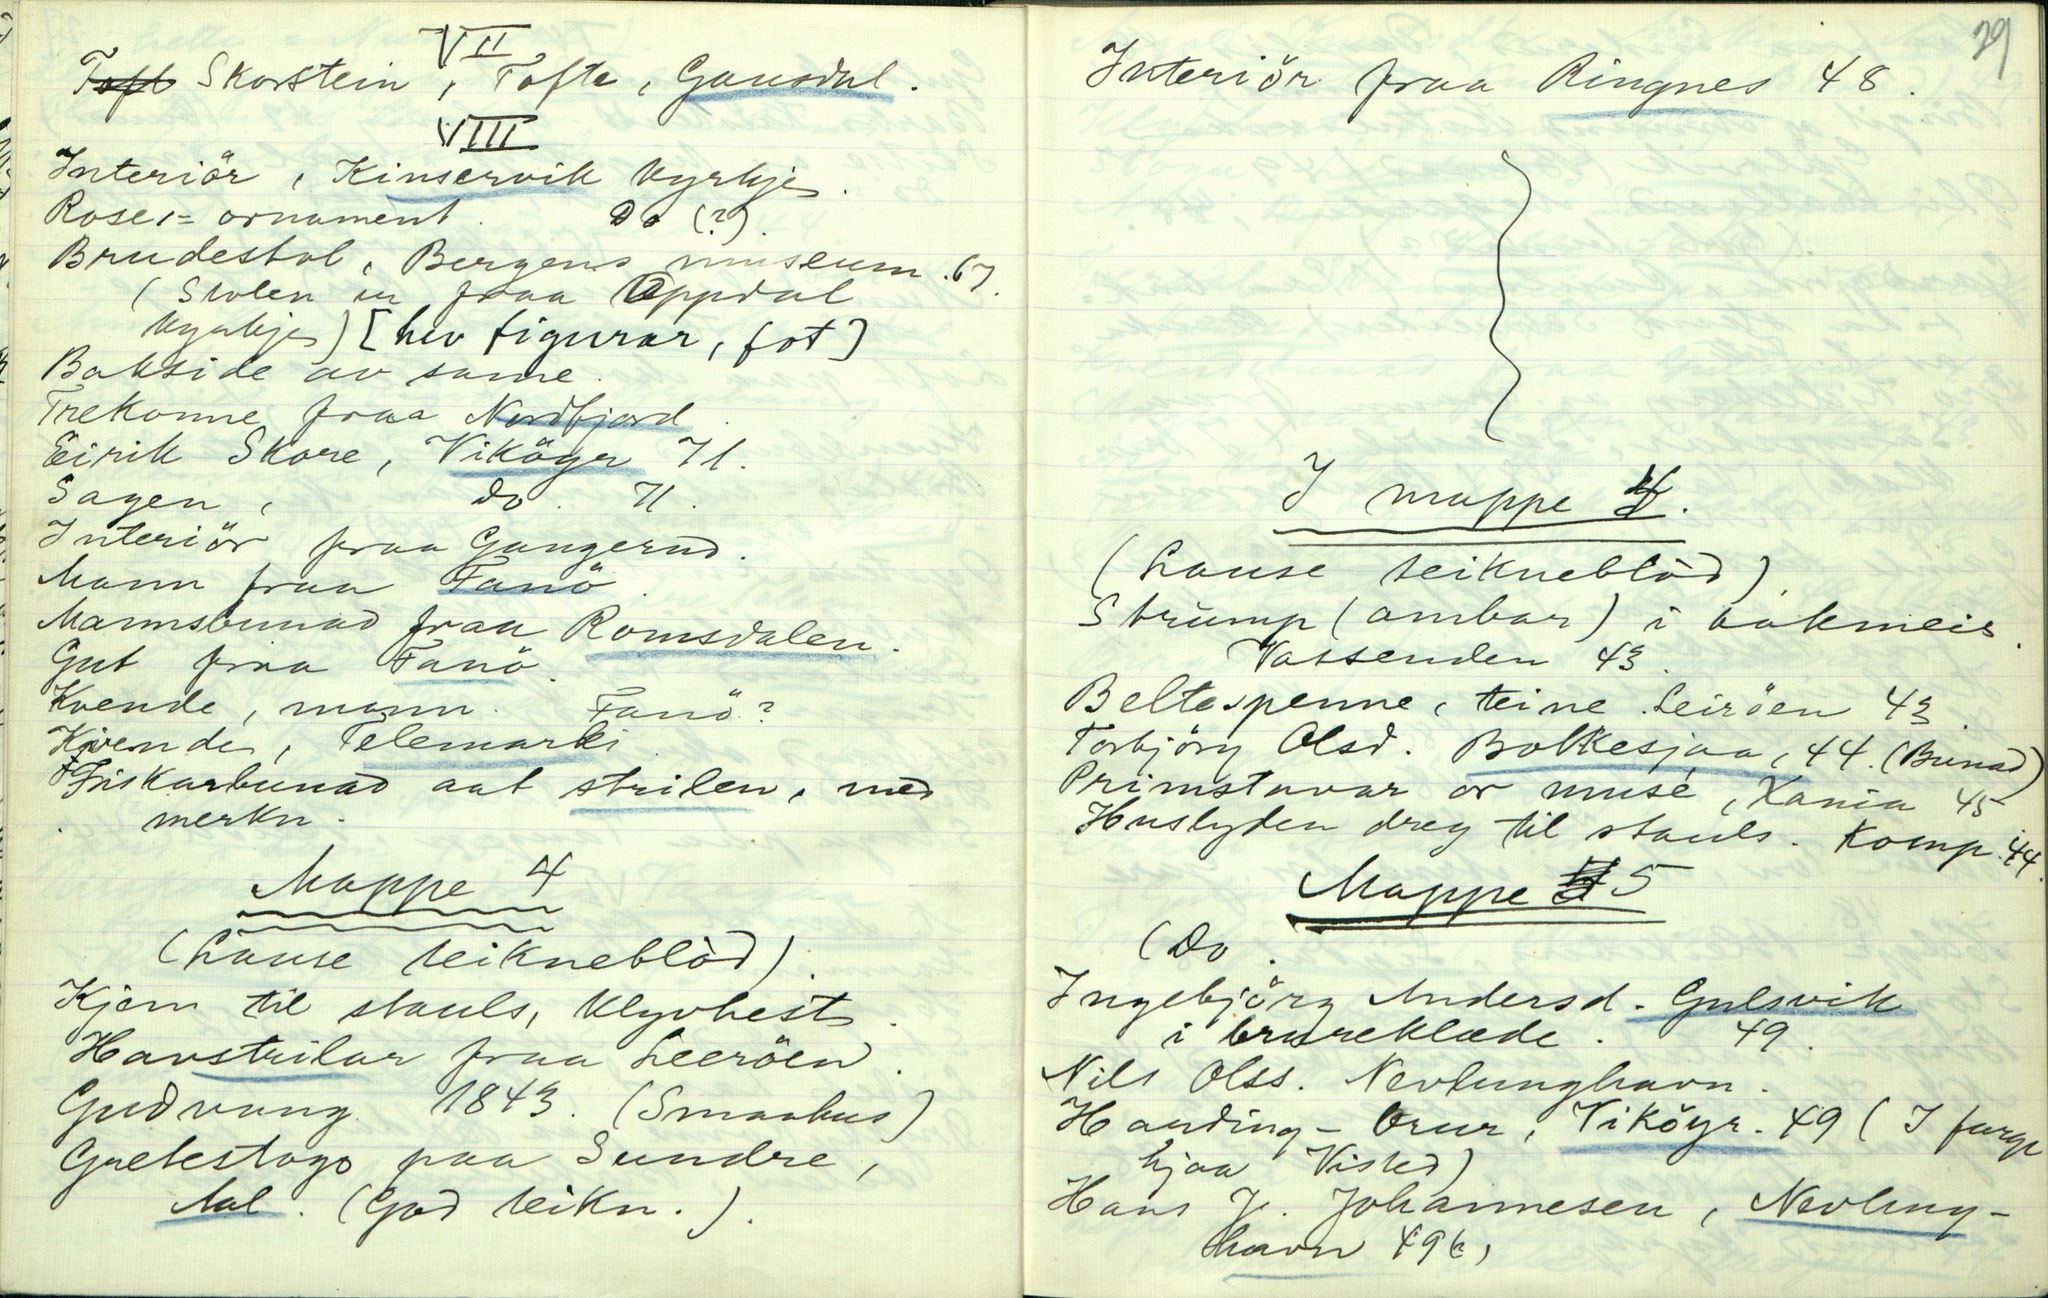 VII
Toft Skorstein, Tofte, Gausdal.
VIII
Interiör, Kinservik kyrkje.
Rose,= ornament. Do (?).
Brudestol, Bergens museum. 67.
(Stolen er fraa Oppdal
kyrkje) [hev figurar, fot]
Bakside av same.
Trekanne fraa Nordfjord.
Eirik Skare, Viköyr 71.
Sagen, do. 71.
Interiör fraa Gangerud.
Mann fraa Fanö.
Mannsbunad fraa Romsdalen.
Gut fraa Fanö.
Kvende, mann. Fanö?
Kvende, Telemarki.
Fiskarbunad aat strilen, med
merkn.
Mappe 4
(Lause teikneblöd).
Kjem til stauls, klyvhest.
Havstrilar fraa Leeröen.
Gudvang 1843. (Smaahus)
Grelestogo paa Sundre,
Aal. (God teikn.).
29
Interiör fraa Ringnes 48.
I mappe 4.
(Lause teikneblöd).
Strump (ambar) i bakmeis.
Vassenden 43.
Beltespenne, teine Leiröen 43.
Torbjörg Olsd. Bolkesjaa, 44. (Bunad)
Primstavar or musé, Xania 45
Huslyden dreg til stauls. Komp. 44.
Mappe 5
(Do.
Ingebjörg Andersd. Gulsvik
i brureklæde. 49.
Nils Olss. Nevlunghavn.
Harding-brur, Viköyr. 49 (I farge
hjaa Visted)
Hans J. Johannesen, Nevlung-
havn 49